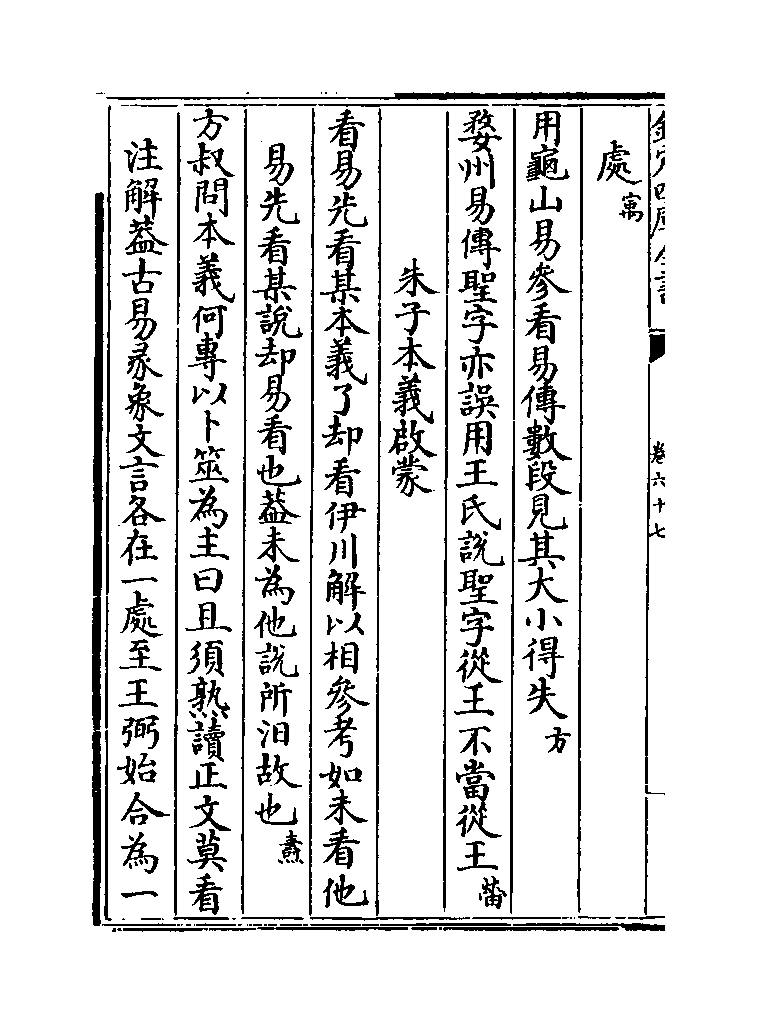 欽定四庫全書
卷六十七
處㝢
用龜山易參看易傳數段見其大小得失方
婺州易傳聖字亦誤用王氏說聖字從王不當從王𮎰
朱子本義啟蒙
看易先看某本義了却看伊川解以相參考如未看他
易先看某說却易看也葢未為他說所汨故也燾
方叔問本義何專以卜筮為主曰且須熟讀正文莫看
注解葢古易彖象文言各在一處至王弼始合為一